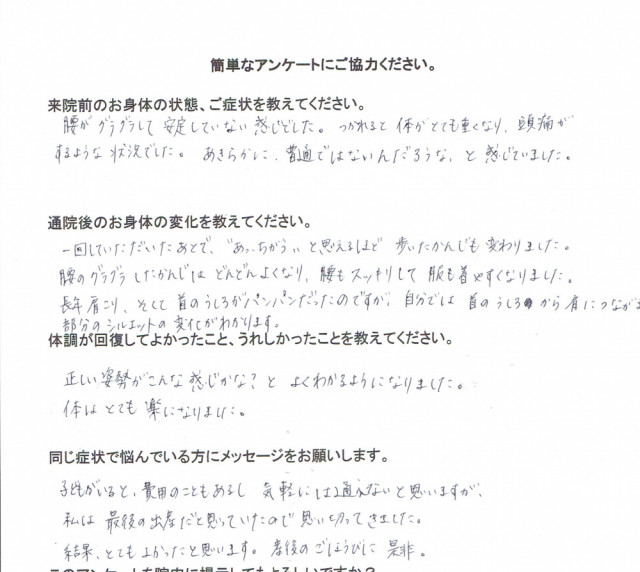 簡単なアンケートにご協力ください。
来院前のお身体の状態、ご症状を教えてください。
腰がグラグラして安定していない感じでした。つかれると体がとても重くなり、頭痛が
するような状況でした。あきらかに、普通ではないんだろうな、と感じていました。
通院後のお身体の変化を教えてください。
一回していただいたあとで、"あっ、ちがう"、と思えるほど歩いたかんじも変わりました。
腰のグラグラしたかんじはどんどんよくなり、腰もスッキリして服も着やすくなりました。
長年肩こり、そして首のうしろがパンパンだったのですが、自分では首のうしろから肩につながる
部分のシルエットの変化がわかります。
体調が回復してよかったこと、うれしかったことを教えてください。
正しい姿勢がこんな感じかな?とよくわかるようになりました。
体はとても楽になりました。
同じ症状で悩んでいる方にメッセージをお願いします。
子供がいると、費用のこともあるし気軽には通えないと思いますが、
私は最後の出産だと思っていたので思い切ってきました。
結果、とてもよかったと思います。産後のごほうびに是非。
このアンケートを院内に掲示してもよろしいですか?